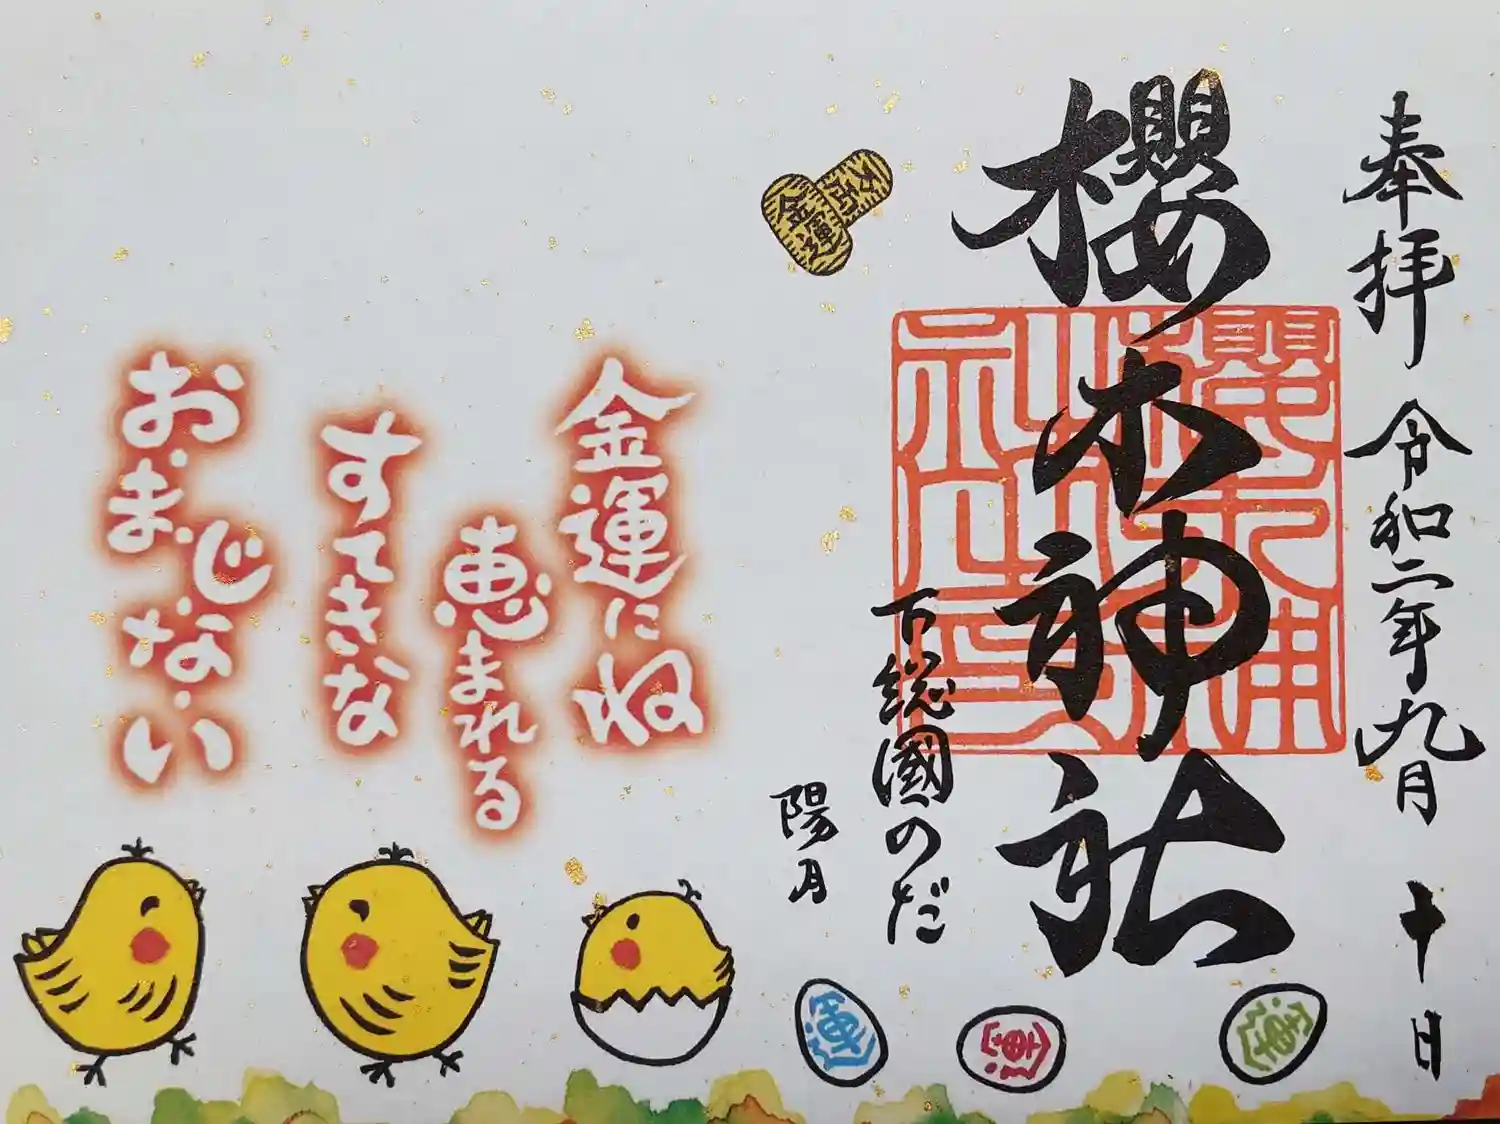 奉拝 令和二年九月十日
櫻木神社
下総國のだ
陽月
金運
金運にね
恵まれる
すてきな
おまじない
運
運
運